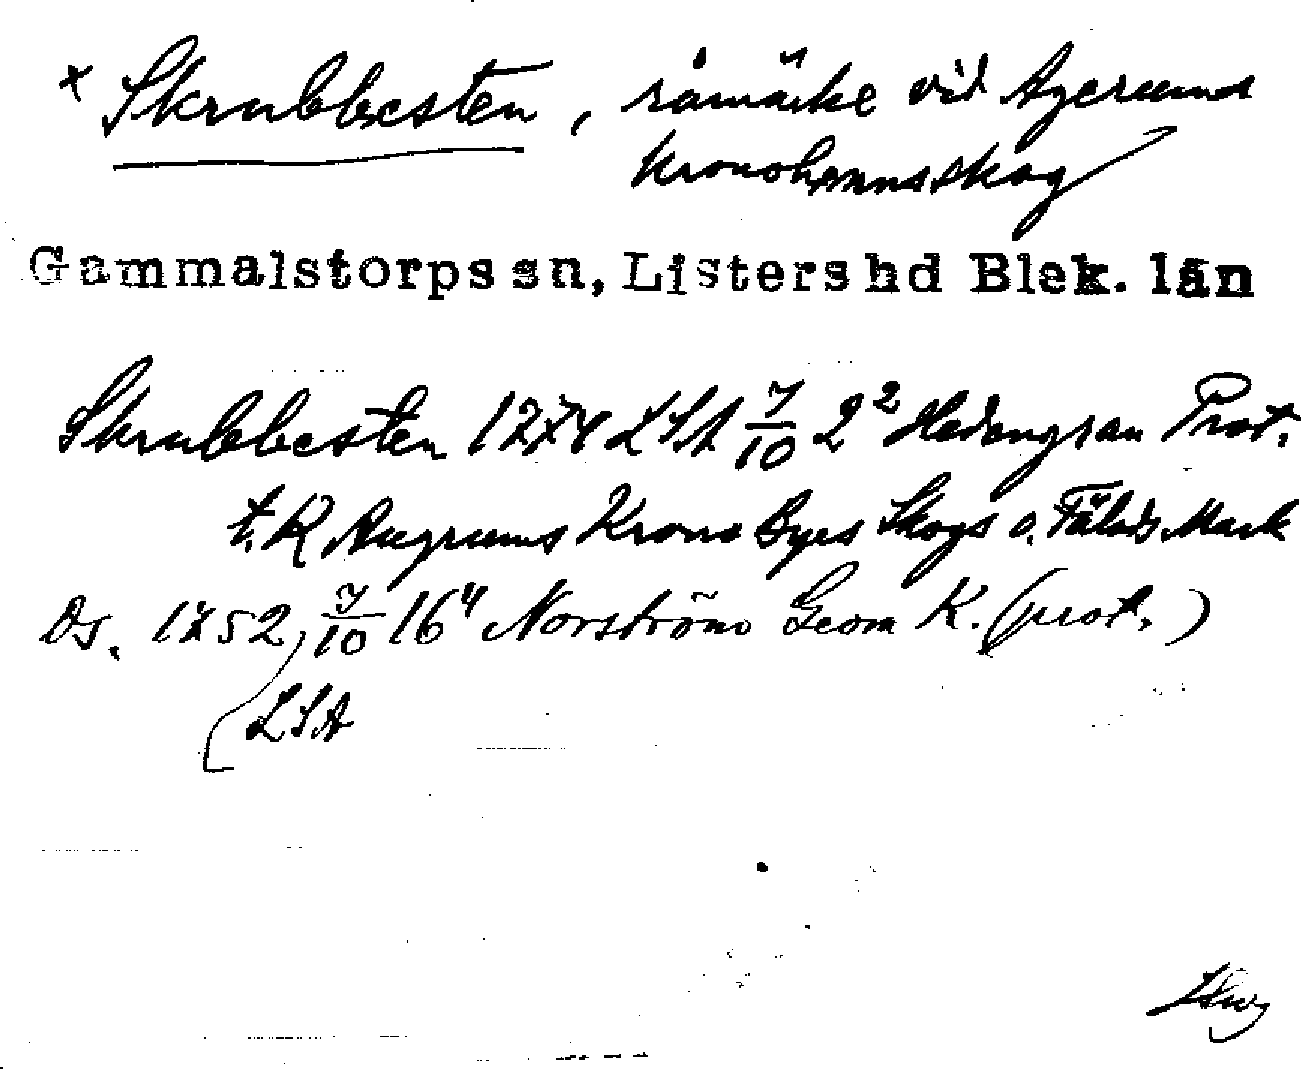 x Skrubbesten, råmärke vid Agerums
kronohemmaskog
Gammalstorps sn, Listers hd Blek. län
Skrubbesten 1774 LSA 7/10 2² Hedengran Prot.
t. K Augrums Krono Byes Skogs o. Fälads Mark
Ds. 1752, 7/10 16⁴ Norström Geom K. (prot.)
LSA